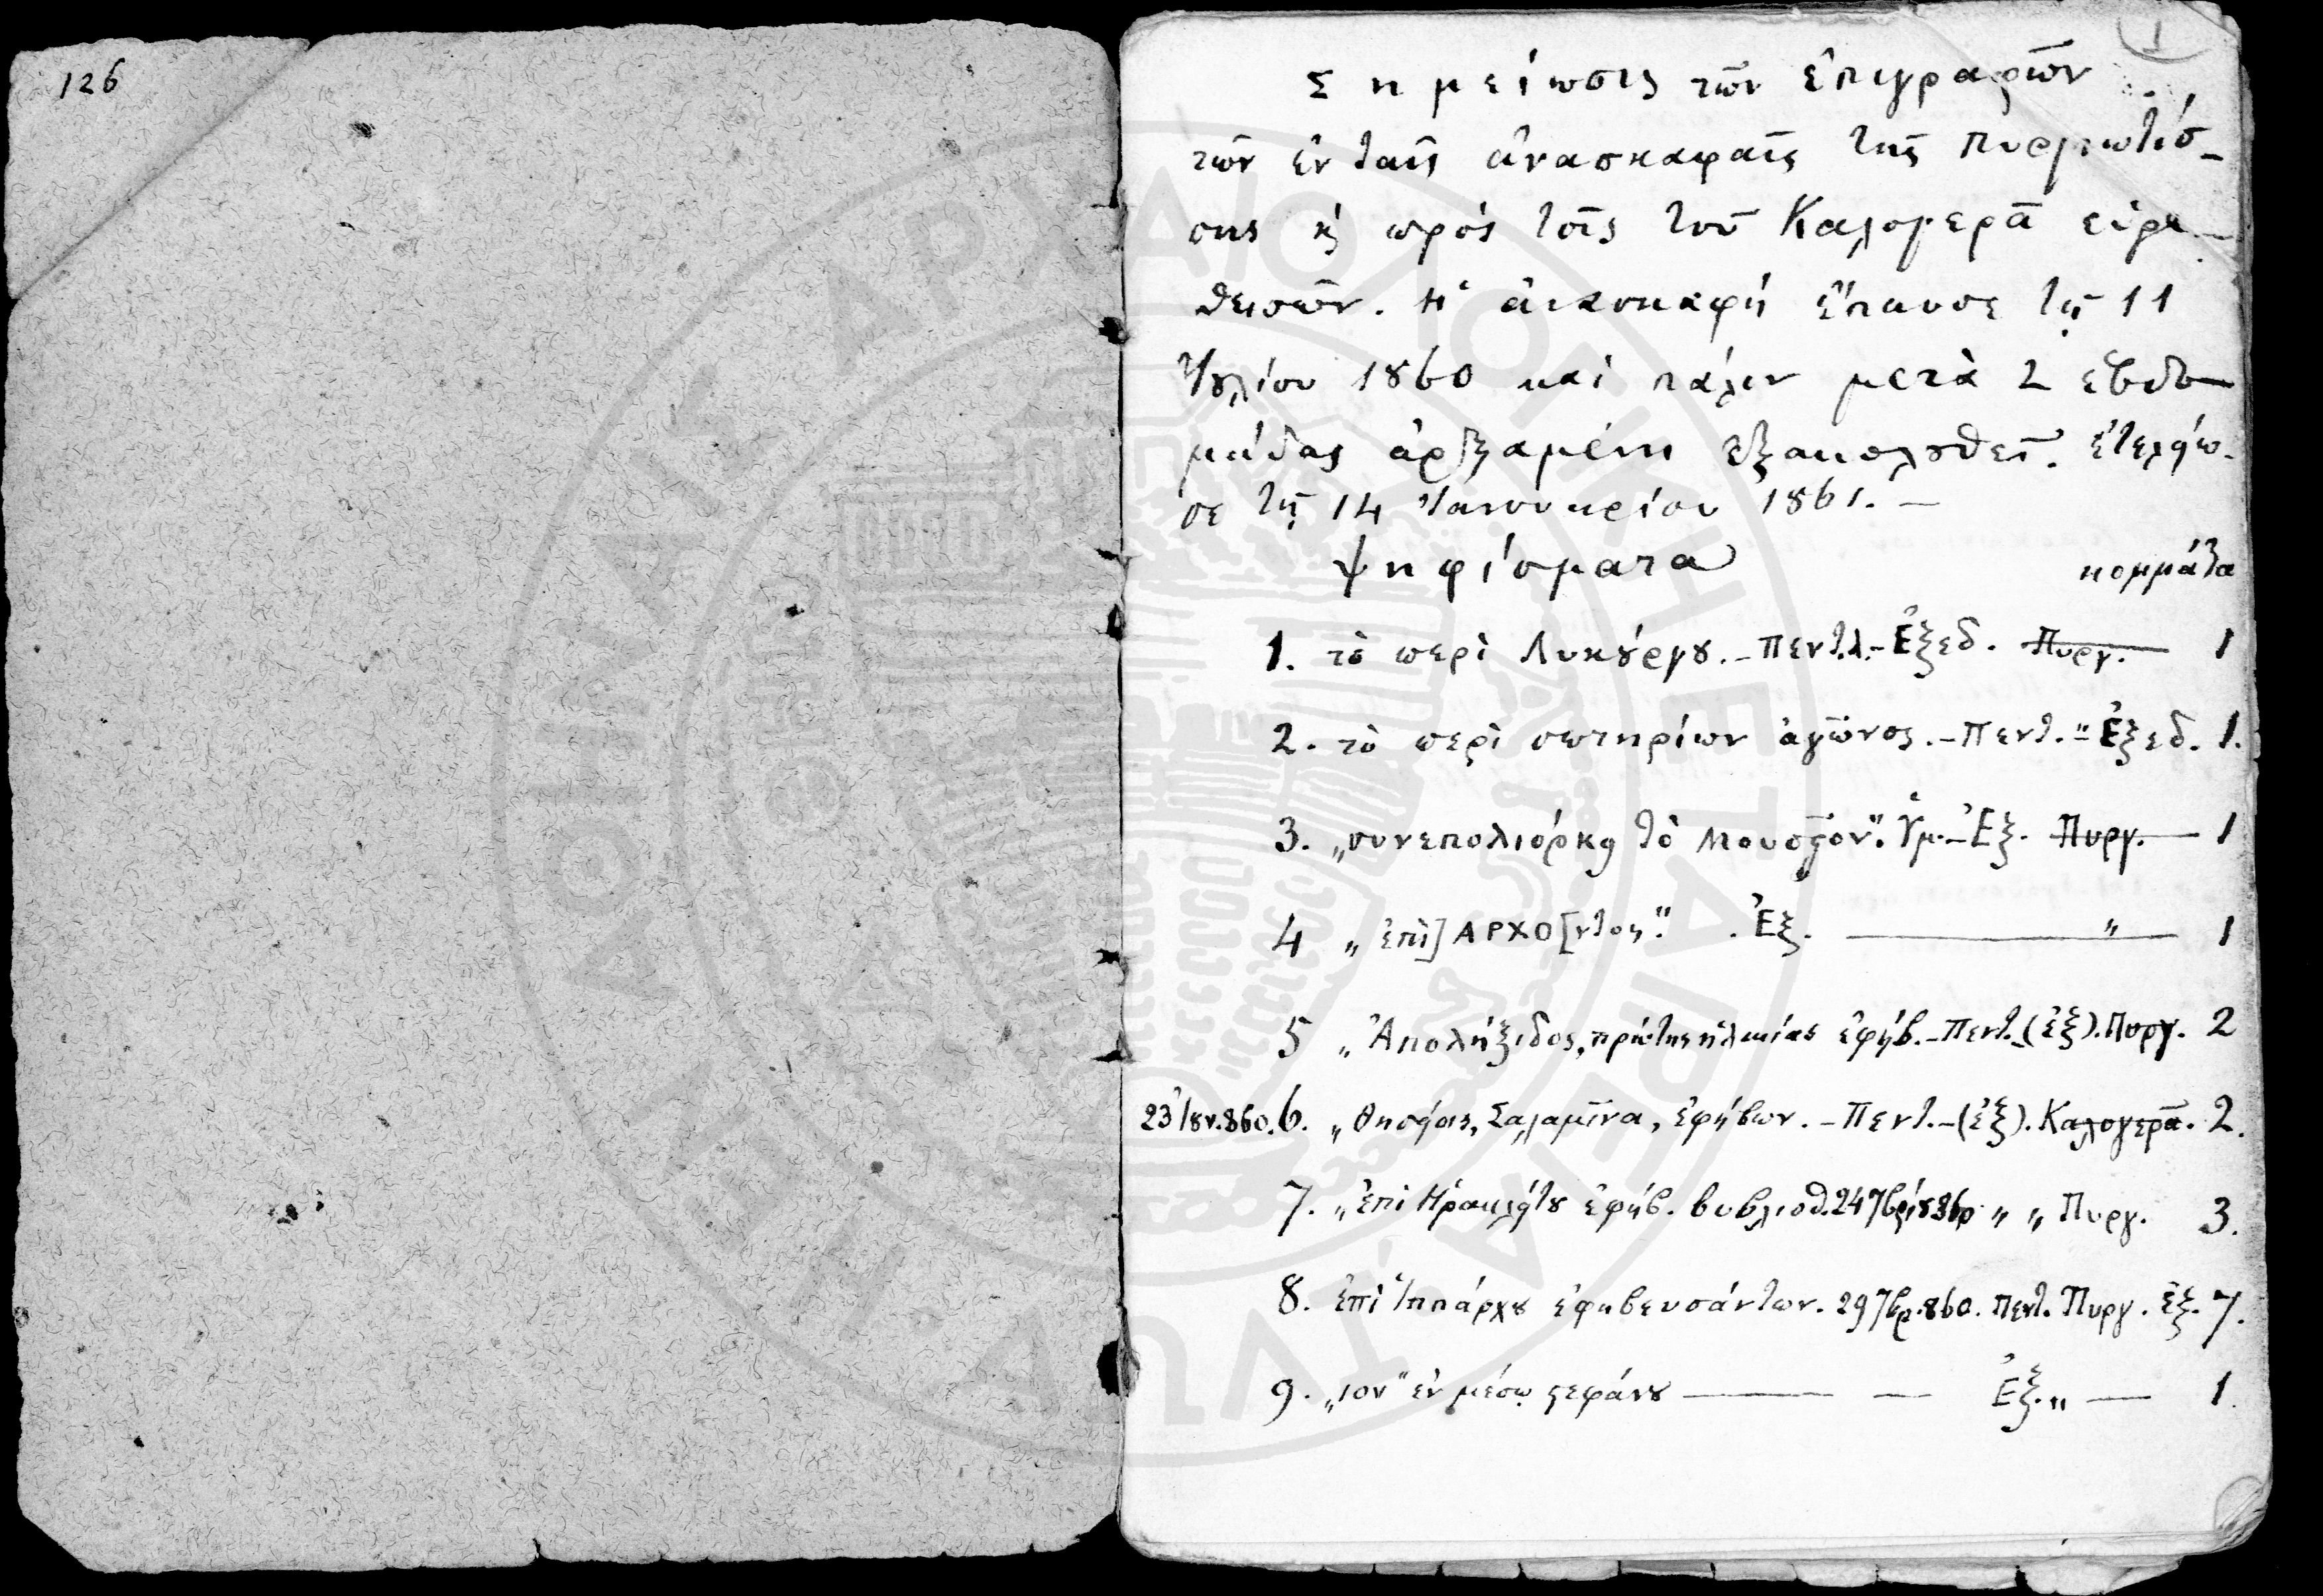 126
1
Σημείωσις τῶν ἐπιγραφῶν
τῶν ἐν ταῖς ἀνασκαφαῖς τῆς Πυργιωτίσ-
σης ϗ πρὸς τοῖς τοῦ Καλογερᾶ εὑρε-
θεισῶν. Ἡ ἀνασκαφὴ ἔπαυσε τῇ 11
Ἰȣλίου 1860 καὶ πάλιν μετὰ 2 ἑβδο-
μάδας ἀρξαμένη ἐξακολȣθεῖ. ἐτελείω-
σε τῇ 14 Ἰαννουαρίου 1861. —
Ψηφίσματα κομμάτια
1. τὸ περὶ Λυκȣ́ργȣ. – Πεντ.λ. – Ἐξεδ. Πυργ. 1
2. τὸ περὶ σωτηρίων ἀγῶνος. – Πεντ. " Ἐξεδ. 1.
3. „συνεπολιόρκει τὸ Μουσεῖον". Ὑμ. – Ἐξ. Πυργ. 1
4 „ἐπὶ] ΑΡΧΟ[ντος". . Ἐξ. — " — 1
5 „Ἀπολήξιδος, πρώτης ἡλικίας ἐφήβ. – Πεντ. – (ἐξ). Πυργ. 2
23 Ἰȣν. 860. 6. „Θησείοις, Σαλαμῖνα, ἐφήβων. – Πεντ. – (ἐξ). Καλογερᾶ. 2.
7. „ἐπὶ Ἡρακλείτȣ ἐφήβ. βυβλιοθ. 24 7βρίȣ 860 " " Πυργ. 3.
8. ἐπὶ Ἱππάρχȣ ἐφηβευσάντων. 29 7βρ. 860. Πεντ. Πυργ. ἐξ. 7.
9. „ιον" ἐν μέσῳ ϛεφάνȣ — — Ἐξ. " — 1.
ΑΡΧΑΙΟΛΟΓΙΚΗ ΕΤΑΙΡΕΙΑ